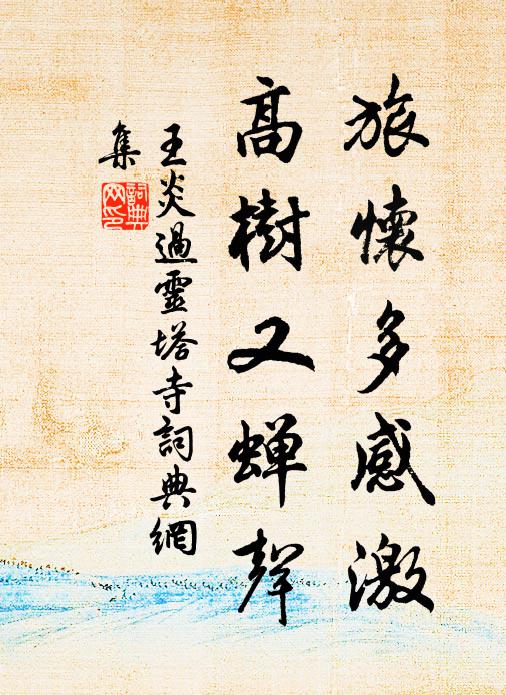 旅懷多感激
高樹又蟬聲
王炎過靈塔寺詞典網
集
詞典網印